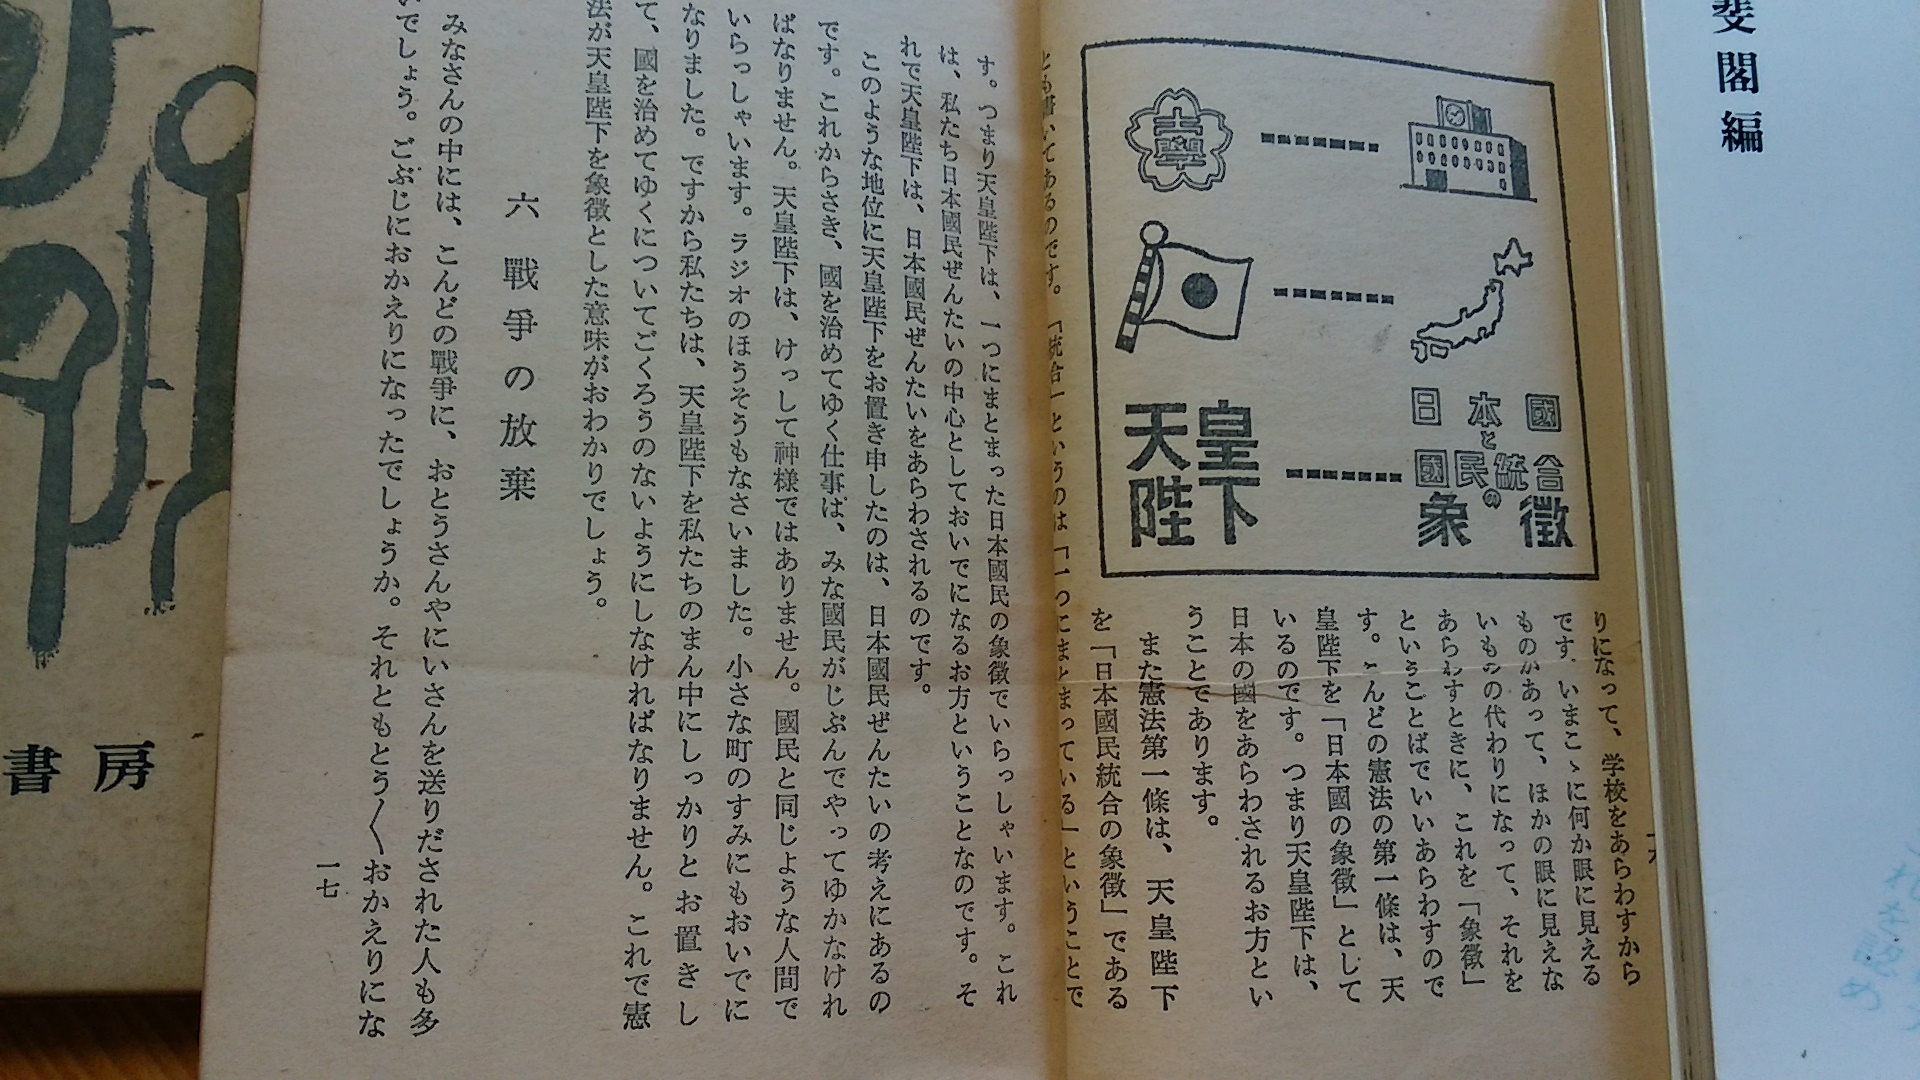 斐閣編
一六
りになって、学校をあらわすから
です。いまこゝに何か眼に見える
ものがあって、ほかの眼に見えな
いものの代わりになって、それを
あらわすときに、これを「象徴」
ということばでいいあらわすので
す。こんどの憲法の第一條は、天
皇陛下を「日本國の象徴」として
いるのです。つまり天皇陛下は、
日本の國をあらわされるお方とい
うことであります。
また憲法第一條は、天皇陛下
を「日本國民統合の象徴」である
大學
日本國
と
國民統合
の
象徴
天皇
陛下
とも書いてあるのです。「統合」というのは「一つにまとまっている」ということで
す。つまり天皇陛下は、一つにまとまった日本國民の象徴でいらっしゃいます。これ
は、私たち日本國民ぜんたいの中心としておいでになるお方ということなのです。そ
れで天皇陛下は、日本國民ぜんたいをあらわされるのです。
このような地位に天皇陛下をお置き申したのは、日本國民ぜんたいの考えにあるの
です。これからさき、國を治めてゆく仕事は、みな國民がじぶんでやってゆかなけれ
ばなりません。天皇陛下は、けっして神様ではありません。國民と同じような人間で
いらっしゃいます。ラジオのほうそうもなさいました。小さな町のすみにもおいでに
なりました。ですから私たちは、天皇陛下を私たちのまん中にしっかりとお置きし
て、國を治めてゆくについてごくろうのないようにしなければなりません。これで憲
法が天皇陛下を象徴とした意味がおわかりでしょう。
六 戰爭の放棄
みなさんの中には、こんどの戰爭に、おとうさんやにいさんを送りだされた人も多
いでしょう。ごぶじにおかえりになったでしょうか。それともとう〳〵おかえりにな
一七
書房